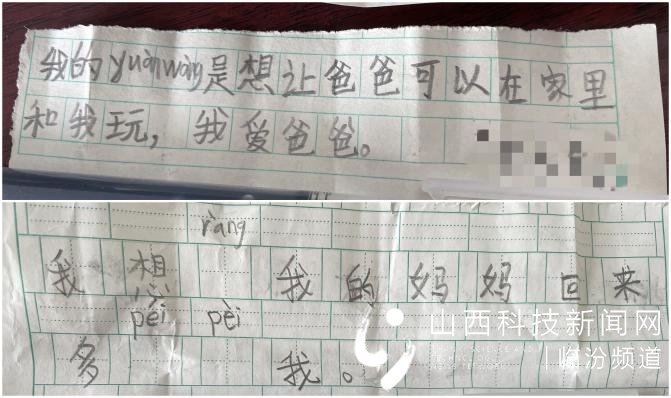 我的yuànwàng是想让爸爸可以在家里
和我玩，我爱爸爸。
ràng
我想 我的妈妈回来
péi pèi
多 我。
山西科技新闻网
临汾频道